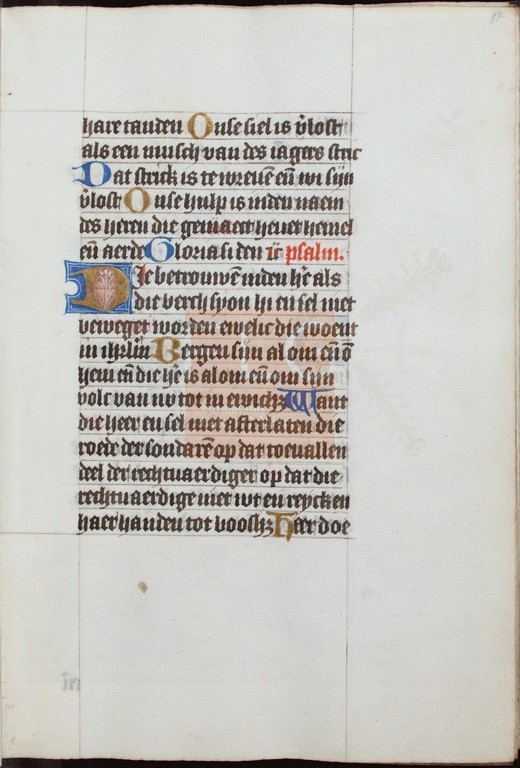 hare tanden Onse siel is v̄lost
als een musch van des iagers stric
Dat strick is te wreuē eñ wi sijn
v̄lost Onse hulp is inden naem
des heren die gemaect heuet hemel
eñ aerde Gloria si den ps psalm.
Die betrouwē inden hē als
die berch syon hi en sel niet
beweget worden ewelic die woent
in ihrlm̄ Bergen sijn al om eñ ō
hem eñ die hē is al om eñ om sijn
volc van nv tot in ewichꝫ Want
die heer en sel niet afterlaten die
roede der sondarē op dat toeuallen
deel der rechtuaerdiger op dat die
rechtuaerdige niet wt en reycken
haer handen tot boosh̄ꝫ Heer doe